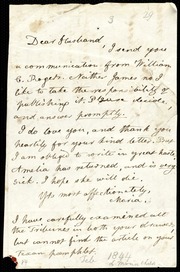 3
29
Dear Husband,
I send you
a communication from William
C. Rogers. Neither James nor I
like to take the responsibility of
publishing it. Please decide,
and answer promptly.
I do love you, and thank you
heartily for your kind letter. But
I am obliged to write in great haste.
Amelia has returned, and is very
sick. I hope she will die.
Yrs most affectionately,
Maria.
I have carefully examined all
the Tribunes in both your drawers,
but cannot find the article on your
Texan pamphlet.
Feb
1844